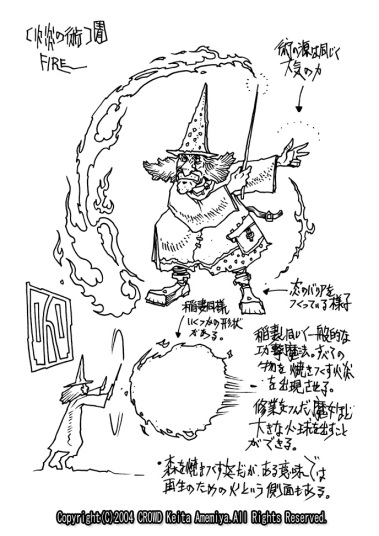 〔火炎の術〕
FIRE
術の源は同じく
大気の力
炎のバリアを
つくっている様子
稲妻同様
いくつかの形状
がある。
稲妻と同じく一般的な
攻撃魔法。すべての
物を焼きつくす火炎
を出現させる。
修業をつんだ魔女ほど
大きな火球を出すこと
ができる。
・森を焼きつくす炎だが、ある意味では
再生のための火という側面もある。
Copyright(C)2004 CROWD Keita Amemiya.All Rights Reserved.